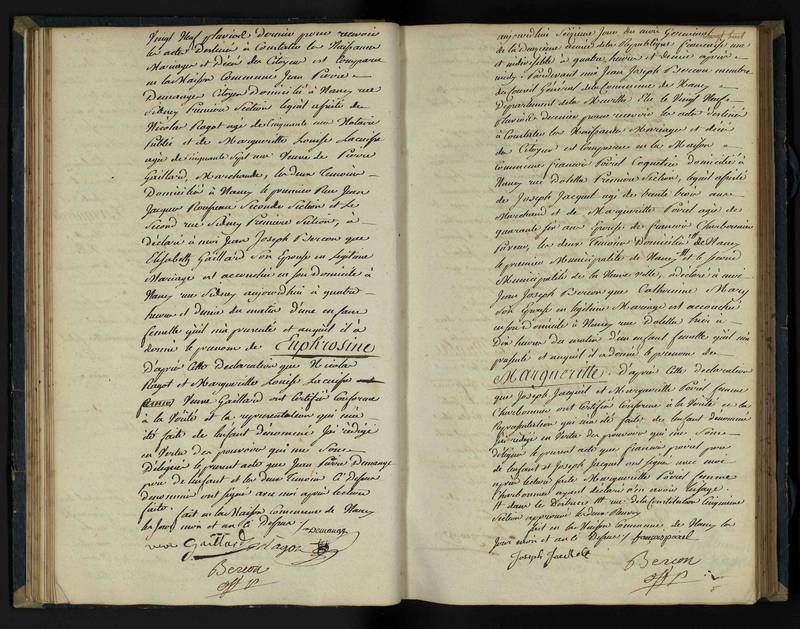 Vingt Neuf pluviose dernier pour recevoir
les actes Destinés à Constater les Naissances
Mariages et Décès des Citoyens est Comparu
en la Maison Commune Jean Pierre
Demange Citoyen Domicilié à Nancy rue
Sidney Première Section lequel assisté de
Nicolas Ragot agé de Cinquante ans Notaire
Public et de Marguerite Louise Lacuisse
agée de Cinquante Sept ans Veuve de Pierre
Gaillard, Marchande, les deux Temoins
Domiciliés à Nancy le premier Rue Jean
Jacques Rousseau Seconde Section et le
Second rue Sidney Première Section, à
Déclaré à moi Jean Joseph Bercon que
Elisabeth Gaillard Son Epouse en légitime
Mariage est accouchée en son domicile à
Nancy rue Sidney aujourdhui à quatre
heures et demie du matin d'une enfant
femelle qu'il m'a presenté et auquel il a
donné le prenom de Euphrosine
D'après Cette Déclaration que Nicolas
Ragot et Marguerite Louise Lacuisse
Veuve Gaillard ont Certifié Conforme
à la Vérité et la representation qui m'a
été faite de l'enfant dénommé J'ai rédigé
en Vertu des pouvoirs qui me Sont
Délégués le present acte que Jean Pierre Demange
pere de l'enfant et les deux Temoins Ci Dessus
denommés ont signé avec moi après lecture
faite. fait en la Maison Commune de Nancy
les Jour mois et an Ci Dessus /. Demange
veuve Gaillard Ragot
Bercon
off. p
aujourdhui Seizieme Jour du mois Germinal
de la Deuxieme année de la Republique française une
et indivisible à quatre heures et demie après
midi, Pardevant moi Jean Joseph Bercon membre
du Conseil Général de la Commune de Nancy
Département de la Meurthe Elu le Vingt Neuf
Pluviose dernier pour recevoir les actes Destinés
à Constater les Naissances Mariages et décès
des Citoyens est Comparu en la Maison
Commune françois Poirel Coquetier domicilié à
Nancy rue Première Section, lequel assisté
de Joseph Jacquel agé de trente trois ans
Marchand et de Marguerite Poirel agée de
quarante six ans Epouse de françois Charbonnier
les deux Temoins Domiciliés
le premier Municipalité de Nancy et le second
Municipalité de la Neuve Ville, a déclaré à moi
Jean Joseph Bercon que Catherine Mary
Son Epouse en légitime Mariage est accouchée
en son domicile à Nancy rue hier à
Dix heures du matin d'un enfant femelle qu'il m'a
presenté et auquel il a donné le prenom de
Marguerite. D'après Cette déclaration
que Joseph Jacquel et Marguerite Poirel femme
Charbonnier ont Certifié Conforme à la Vérité et la
Representation qui m'a été faite de l'enfant dénommé
J'ai redigé en Vertu des pouvoirs qui me Sont
délégués le present acte que françois poirel pere
de l'enfant et Joseph Jacquel ont signé avec moi
après lecture faite Marguerite Poirel femme
Charbonnier ayant declaré n'en avoir l'usage.
rue de la Constitution Cinquieme
Section
fait en la Maison Commune de Nancy les
Jour mois et an Ci Dessus /. françois poirel
Joseph Jacquel
Bercon
off. p